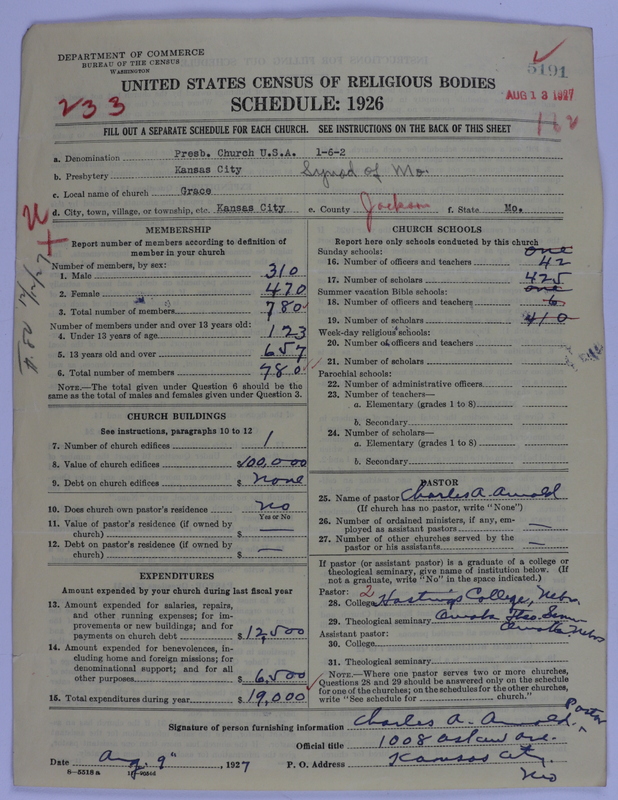 DEPARTMENT OF COMMERCE
BUREAU OF THE CENSUS
WASHINGTON
5191
AUG 13 1927
UNITED STATES CENSUS OF RELIGIOUS BODIES
SCHEDULE: 1926
233
162
FILL OUT A SEPARATE SCHEDULE FOR EACH CHURCH. SEE INSTRUCTIONS ON THE BACK OF THIS SHEET
a. Denomination Presb. Church U.S.A. 1-6-2
b. Presbytery Kansas City Synod of Mo.
c. Local name of church Grace
d. City, town, village, or township, etc. Kansas City e. County Jackson f. State Mo.
MEMBERSHIP
Report number of members according to definition of
member in your church
Number of members, by sex:
1. Male 310
2. Female 470
3. Total number of members 780
Number of members under and over 13 years old:
4. Under 13 years of age 123
5. 13 years old and over 657
6. Total number of members 780
NOTE.—The total given under Question 6 should be the
same as the total of males and females given under Question 3.
CHURCH BUILDINGS
See instructions, paragraphs 10 to 12
7. Number of church edifices 1
8. Value of church edifices $100,000
9. Debt on church edifices $ none
10. Does church own pastor's residence no
Yes or No
11. Value of pastor's residence (if owned by
church) $ —
12. Debt on pastor's residence (if owned by
church) $ —
EXPENDITURES
Amount expended by church during last fiscal year
13. Amount expended for salaries, repairs,
and other running expenses; for im-
provements or new buildings; and for
payments on church debt $12,500
14. Amount expended for benevolences, in-
cluding home and foreign missions; for
denominational support; and for all
other purposes $6,500
15. Total expenditures during year $19,000
CHURCH SCHOOLS
Report here only schools conducted by this church
Sunday schools: one
16. Number of officers and teachers 42
17. Number of scholars 425
Summer vacation Bible schools: one
18. Number of officers and teachers 6
19. Number of scholars 410
Week-day religious schools:
20. Number of officers and teachers
21. Number of scholars
Parochial schools:
22. Number of administrative officers
23. Number of teachers—
a. Elementary (grades 1 to 8)
b. Secondary
24. Number of scholars—
a. Elementary (grades 1 to 8)
b. Secondary
PASTOR
25. Name of pastor Charles A. Arnold
(If church has no pastor, write "None")
26. Number of ordained ministers, if any, em-
ployed as assistant pastors —
27. Number of other churches served by the
pastor or his assistants —
If pastor (or assistant pastor) is a graduate of a college or
theological seminary, give name of institution below. (If
not a graduate, write "No" in the space indicated.)
Pastor: 2
28. College Hastings College, Nebr.
29. Theological seminary Omaha Theo. Sem
Omaha Nebr
Assistant pastor:
30. College
31. Theological seminary
NOTE.—Where one pastor serves two or more churches,
Questions 28 and 29 should be answered only on the schedule
for one of the churches; on the schedules for the other churches,
write "See schedule for church."
Signature of person furnishing information Charles A. Arnold.
Official title Pastor
Date Aug. 9" 1927 P. O. Address 1008 Askew ave.
Kansas City
Mo
8—5518a